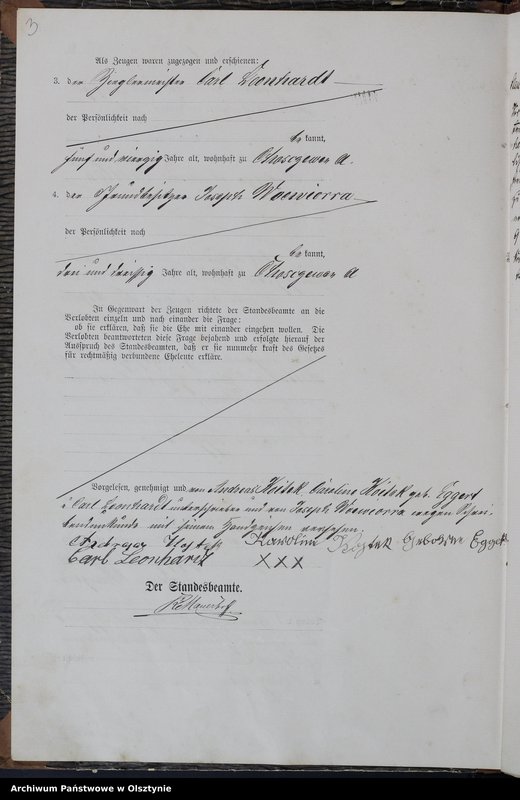 3
Als Zeugen waren zugezogen und erschienen:
3. der Zieglermeister Carl Leonhardt
der Persönlichkeit nach
be kannt,
fünf und vierzig Jahre alt, wohnhaft zu A.
4. der Grundbesitzer Joseph Woewiorra
der Persönlichkeit nach
be kannt,
drei und dreissig Jahre alt, wohnhaft zu A
In Gegenwart der Zeugen richtete der Standesbeamte an die
Verlobten einzeln und nach einander die Frage:
ob sie erklären, daß sie die Ehe mit einander eingehen wollen. Die
Verlobten beantworteten diese Frage bejahend und erfolgte hierauf der
Ausspruch des Standesbeamten, daß er sie nunmehr kraft des Gesetzes
für rechtmäßig verbundene Eheleute erkläre.
Vorgelesen, genehmigt und von Andreas Karoline geb. Eggert
u. Carl Leonhardt unterschrieben und von Joseph Woewiorra wegen Schrei-
bensunkunde mit seinem Handzeichen versehen.
Karolin Geborne Eggert
Carl Leonhardt XXX
Der Standesbeamte.
Archiwum Państwowe w Olsztynie